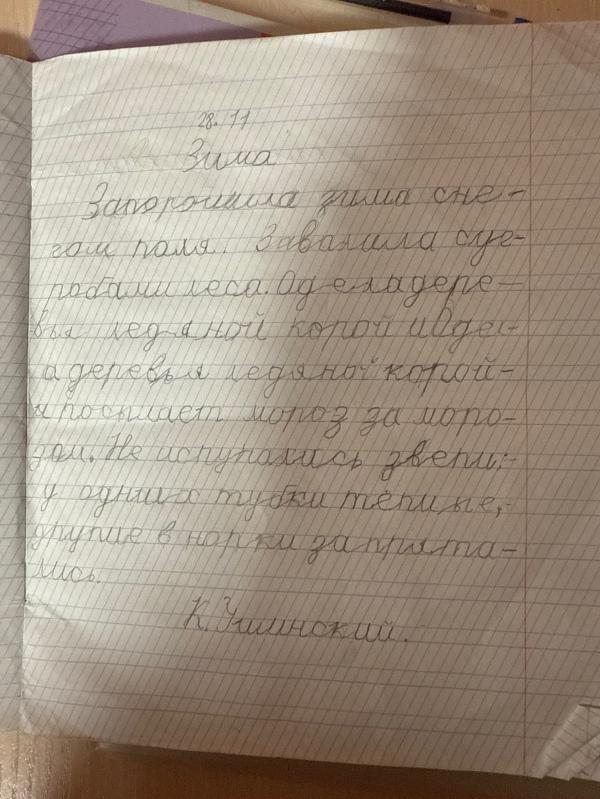 28.11
Зима
Запорошила зима сне-
гом поля. Завалила суг-
робами леса. Од ела дере-
вья ледяной корой и Оде-
ла деревья ледяной корой-
и посылает мороз за моро-
зом. Не испугались звери:-
у одних шубки тёплые,-
другие в норки запрята-
лись.
К. Ушинский.